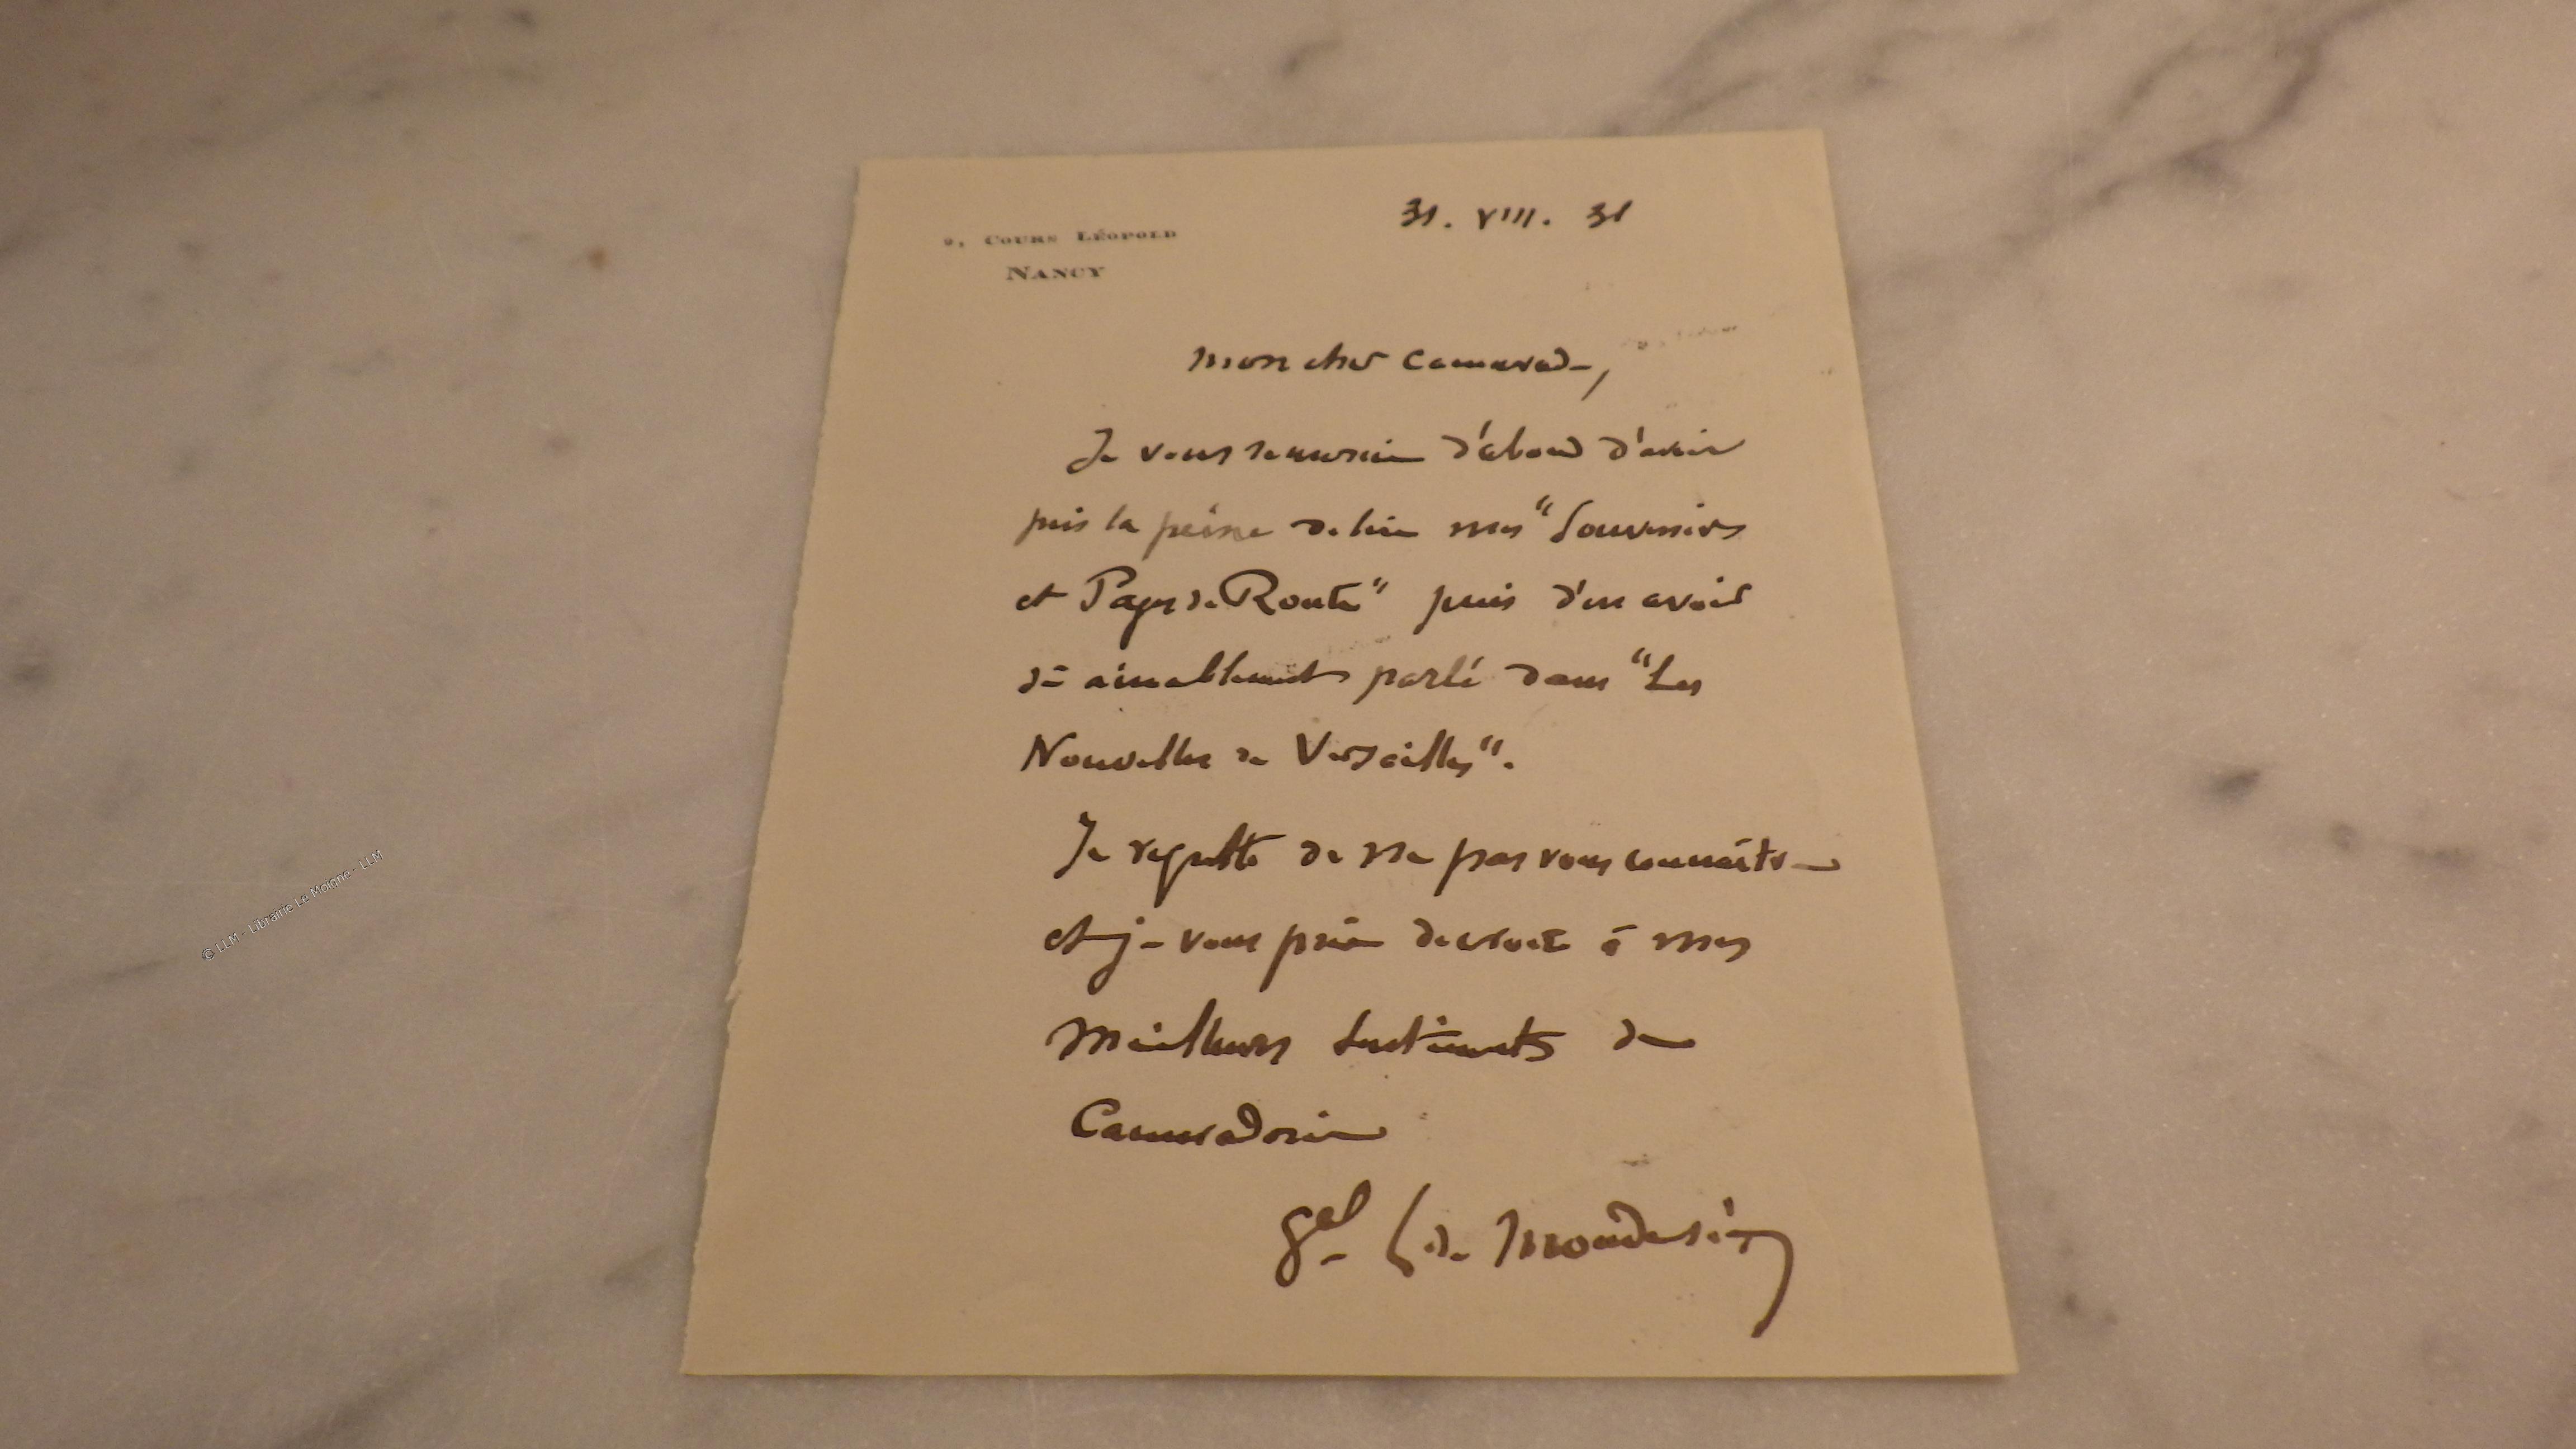 9, COURS LÉOPOLD
NANCY
31. VIII. 31
Mon cher Camarade,
Je vous remercie d'abord d'avoir
pris la peine de lire mes "Souvenirs
et Pages de Route" puis d'en avoir
si aimablement parlé dans "Les
Nouvelles de Versailles".
Je regrette de ne pas vous connaître
et je vous prie de croire à mes
Meilleurs Sentiments de
Camaraderie
Gal de Mondésir
© LLM - Librairie Le Moigne - LLM